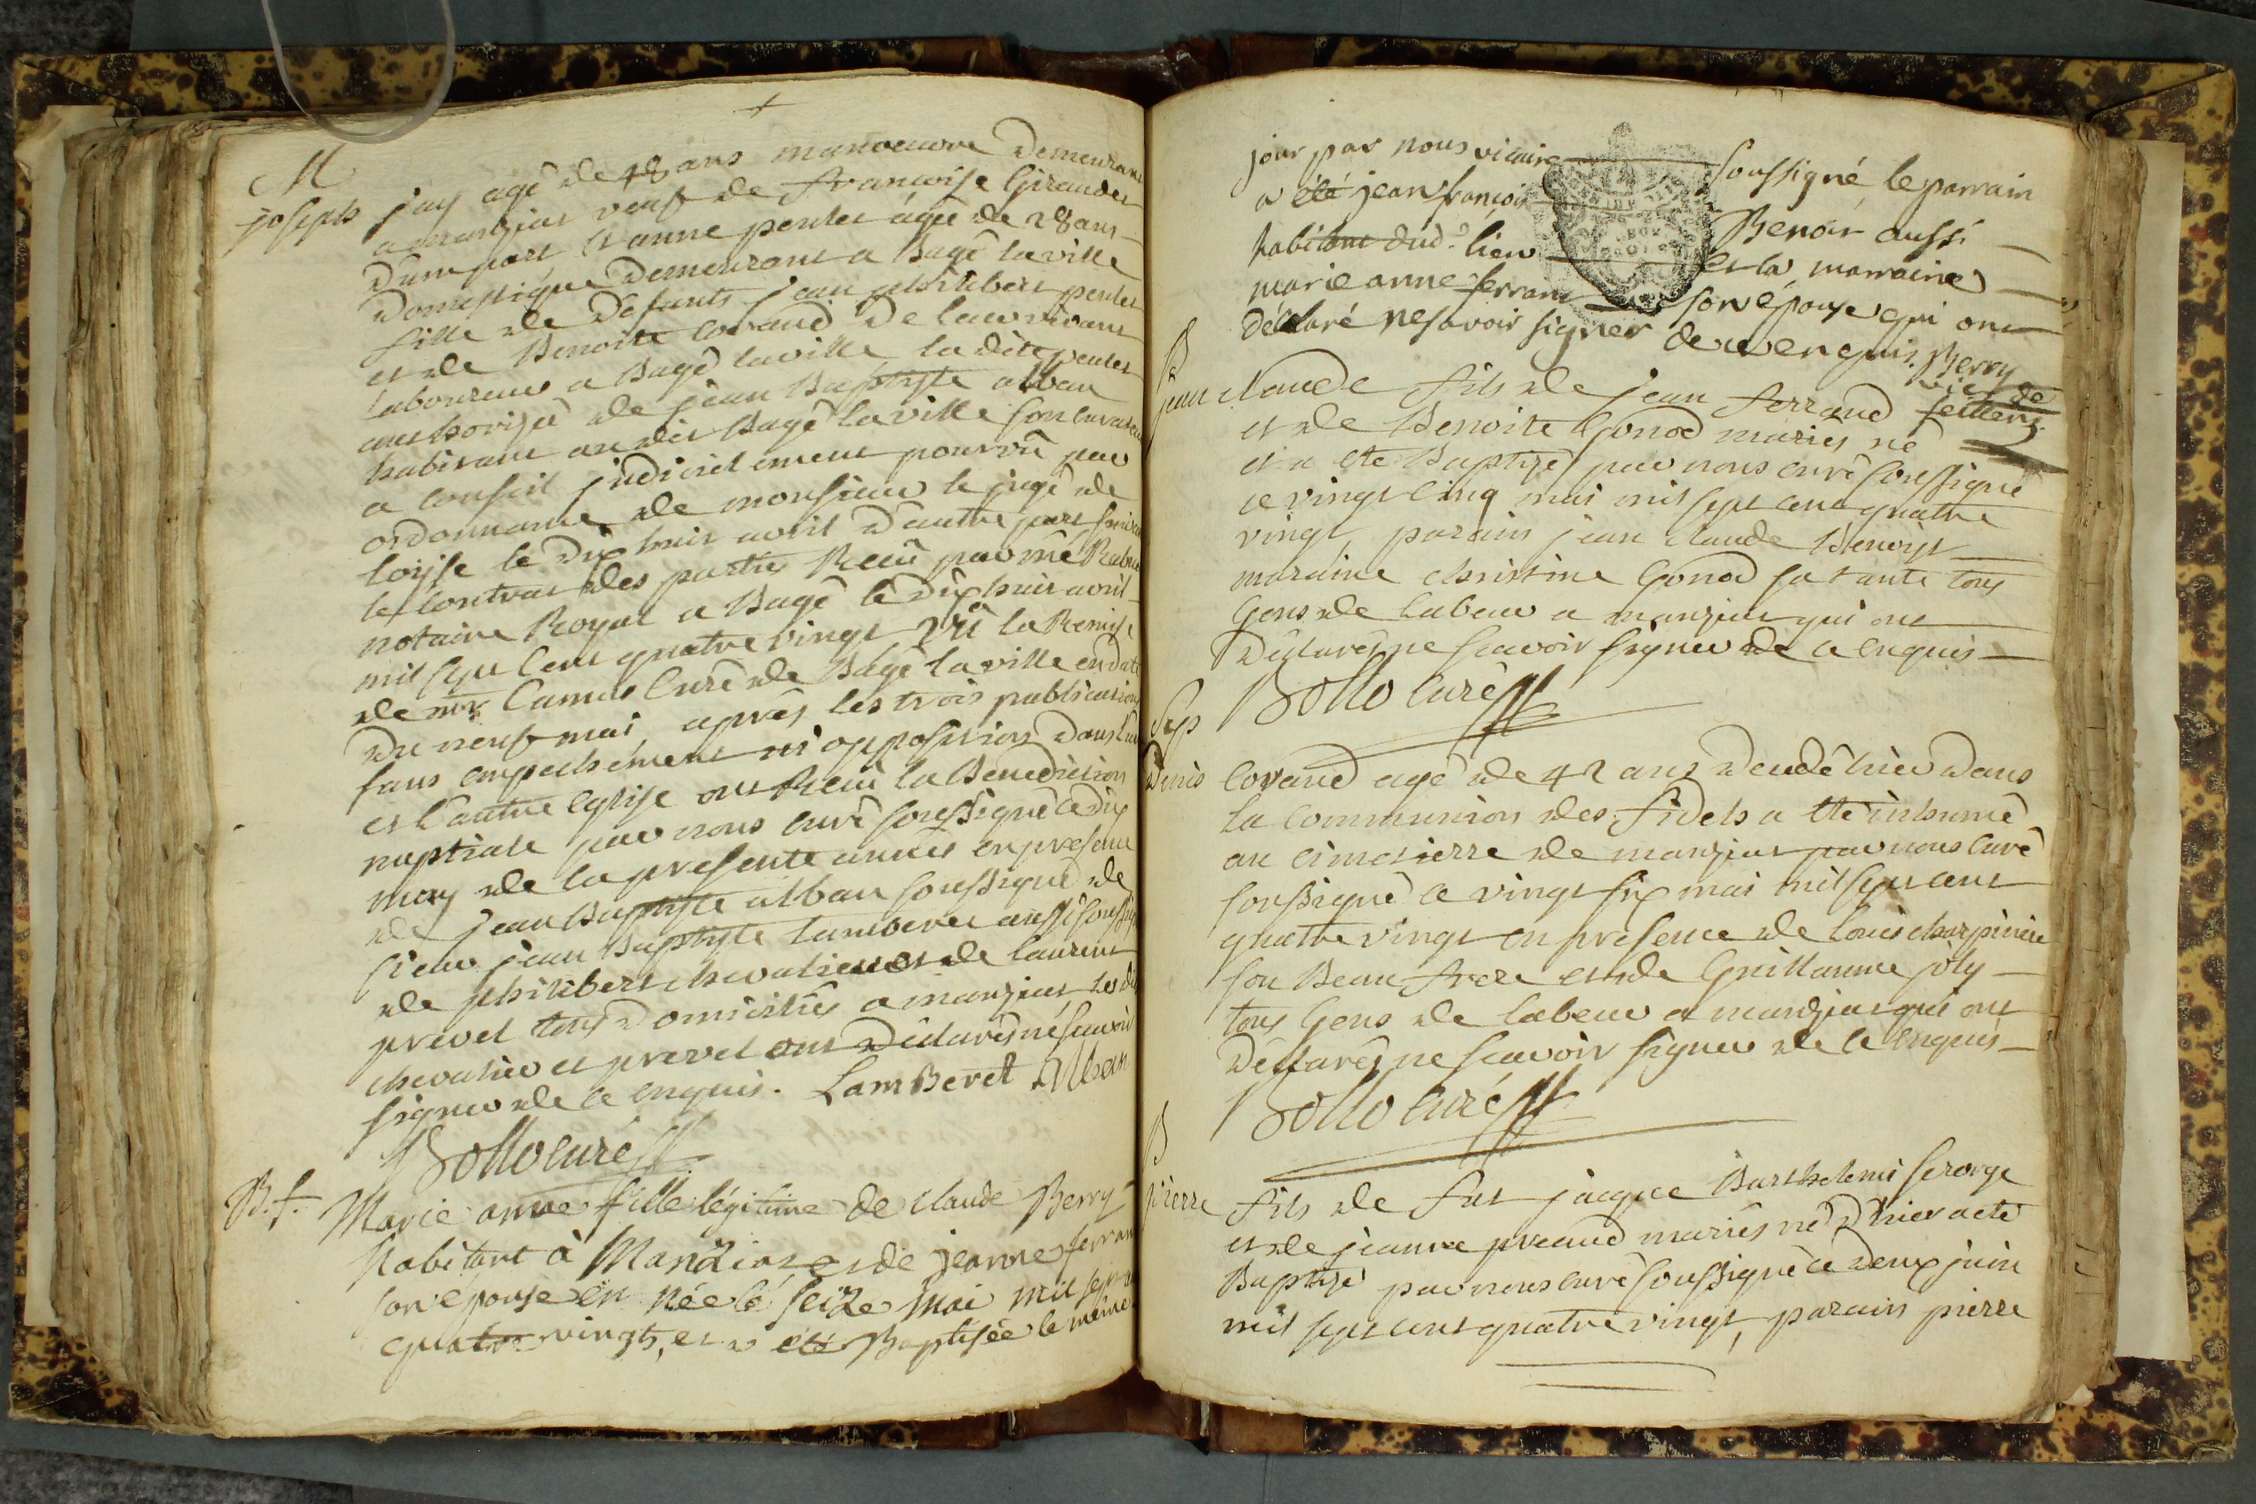 M
joseph jay agé de 48 ans manoeuvre demeurant
a manziat veuf de francoise Giraudet
d'une part et anne perdet agée de 28 ans
Domestique demeurant a Bagé la ville
fille de défunts jean philibert perdet
et de Benoite Corand De leur vivant
laboureur a Bagé la ville la dite perdet
authorizée de jean Baptiste alban
habitant au dit Bagé la ville son curateur
a conseil judiciellement pourvû par
ordonnance de monsieur le juge de
le dix huit avril d'autre part
le contrat des parties Recû par me
notaire Royal a Bagé le dix huit avril
mil sept cent quatre vingt vû la Remise
de mr Camus Curé de Bagé la ville en date
Du neuf mai après les trois publications
sans empechement ni opposition dans l'une
et l'autre Eglise ont Recû la Benediction
nuptiale par nous curé soussigné ce dix
may de la presente année en presence
de jean Baptiste alban soussigné de
sieur jean Baptiste Lamberet aussi soussigné
de philibert chevalier et de laurent
prevel tous domiciliés a manziat les dits
chevalier et prevel ont Déclarés ne scavoir
signer de ce enquis. LamBeret Alban
Bollo curé
B. f. Marie anne fille légitime de claude Berry
habitant à Manziat et de jeanne ferrand
son epouse en née le seize mai mil sept cent
quatre vingts, et a été Baptisée le même
jour par nous vicaire soussigné, le parrain
a été jean françois Benoit aussi
habitant dud.t lieu et la marraine
marie anne ferrand son épouse qui ont
déclaré ne savoir signer de ce enquis. Berry
vic. de
feillens
B
jean claude fils de jean ferrand
et de Benoite Gonod mariés né
et a été Baptizé par nous curé soussigné
ce vingt cinq mai mil sept cent quatre
vingt, parain jean claude Benoist
maraine christine Gonod sa tante tous
Gens de labeur a manziat qui ont
Déclarés ne scavoir signer de ce enquis
Bollo curé
Sep
Denis Corand agé de 42 ans décédé hier dans
la communion des fidels a été inhumé
au cimetierre de manziat par nous Curé
soussigné ce vingt six mai mil sept cent
quatre vingt en presence de louis charpiniere
son Beau frere et de Guillaume joly
tous Gens de labeur a manziat qui ont
Déclarés ne scavoir signer de ce enquis
Bollo curé
B
Pierre fils de fut jacque Barthelemi feraroge
et de jeanne preaud mariés né d'hier a été
Baptizé par nous curé soussigné ce deux juin
mil sept cent quatre vingt, parain pierre